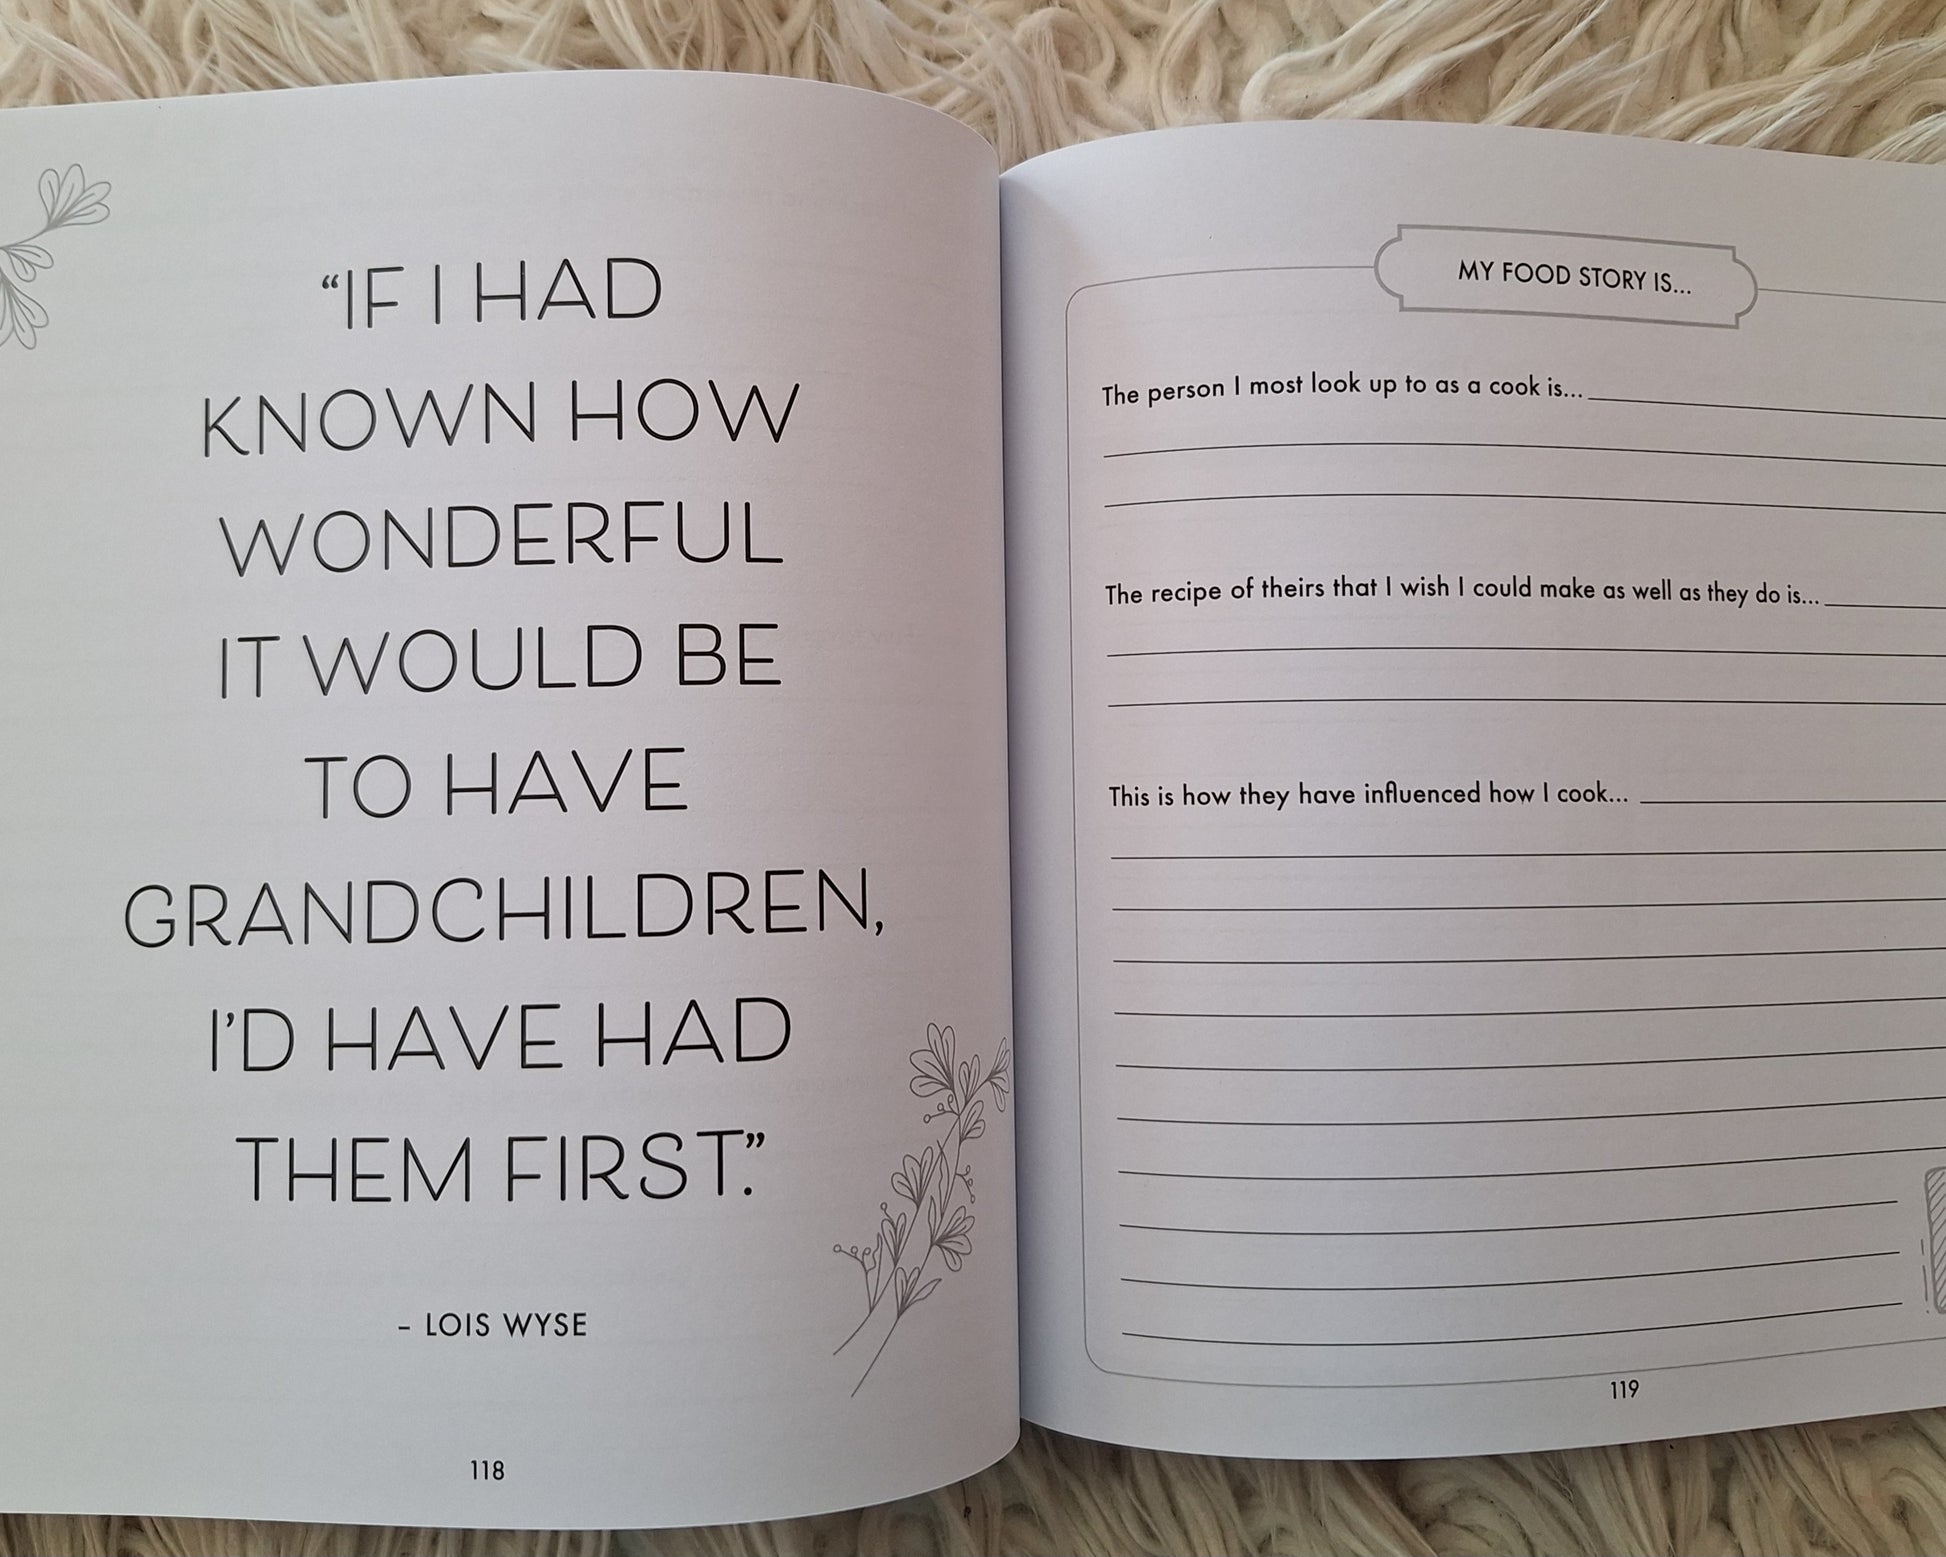 “IF I HAD
KNOWN HOW
WONDERFUL
IT WOULD BE
TO HAVE
GRANDCHILDREN,
I’D HAVE HAD
THEM FIRST.”
– LOIS WYSE
118
MY FOOD STORY IS...
The person I most look up to as a cook is...
The recipe of theirs that I wish I could make as well as they do is...
This is how they have influenced how I cook...
119